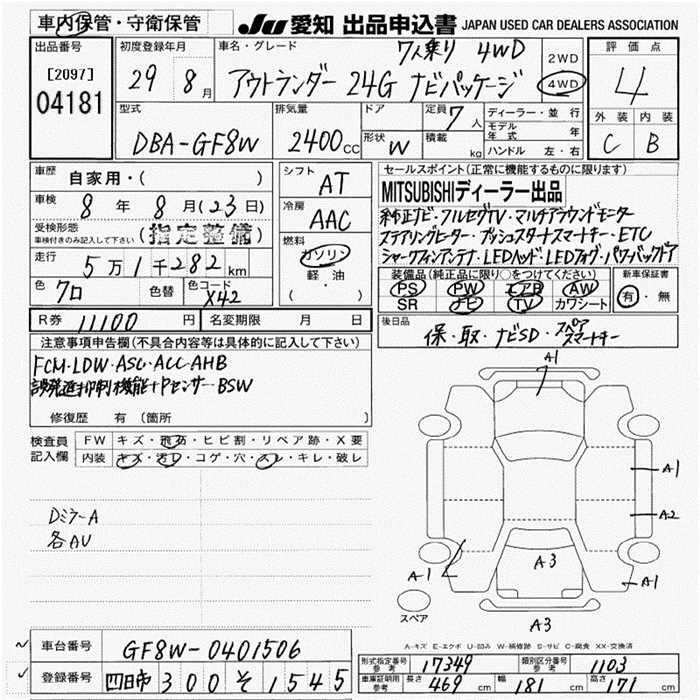 車内保管・守衛保管 JU 愛知 出品申込書 JAPAN USED CAR DEALERS ASSOCIATION
出品番号 [2097] 04181
初度登録年月 29 8月
車名・グレード 7人乗り 4WD
アウトランダー 24G ナビパッケージ
2WD 4WD
評価点 4
外装 内装
C B
型式 DBA-GF8W
排気量 2400CC
ドア 形状 W
定員 7人
積載 kg
ディーラー・並行
モデル年式 年
ハンドル 左・右
車歴 自家用・( )
車検 8年8月(23日)
受検形態 車検付きのみ記入して下さい (指定整備)
走行 5万1千282km
色 クロ 色替 色コード X42
シフト AT
冷房 AAC
燃料 ガソリン 軽油 ( ・ )
セールスポイント(正常に機能するものに限ります)
MITSUBISHIディーラー出品
純正ナビ・フルセグTV・マルチアラウンドモニター
ステアリングヒーター・プッシュスタートスマートキー・ETC
シャークフィンアンテナ・LEDヘッド・LEDフォグ・パワーバックドア
装備品(純正品に限り○をつけてください) 新車保証書
PS PW エアB AW 有・無
SR ナビ TV カワシート
R券 11100円 名変期限 月 日
後日品 保・取・ナビSD・スペアスマートキー
注意事項申告欄(不具合内容等は具体的に記入して下さい)
FCM・LDW・ASC・ACC・AHB
誤発進抑制機能+Pセンサー・BSW
修復歴 有(箇所
検査員記入欄
FW キズ・飛石・ヒビ割・リペア跡・X要
内装 キズ・汚レ・コゲ・穴・スレ・キレ・破レ
Dミラー A
各AU
A1
A1
A2
A3
A1
A1
A3
スペア
A-キズ E-エクボ U-凹み W-補修跡 S-サビ C-腐食 XX-交換済
車台番号 GF8W-0401506
登録番号 四日市 300 そ 1545
形式指定番号 参考 17349 類別区分番号 参考 1103
車庫証明用 参考 長さ 469cm 幅 181cm 高さ 171cm